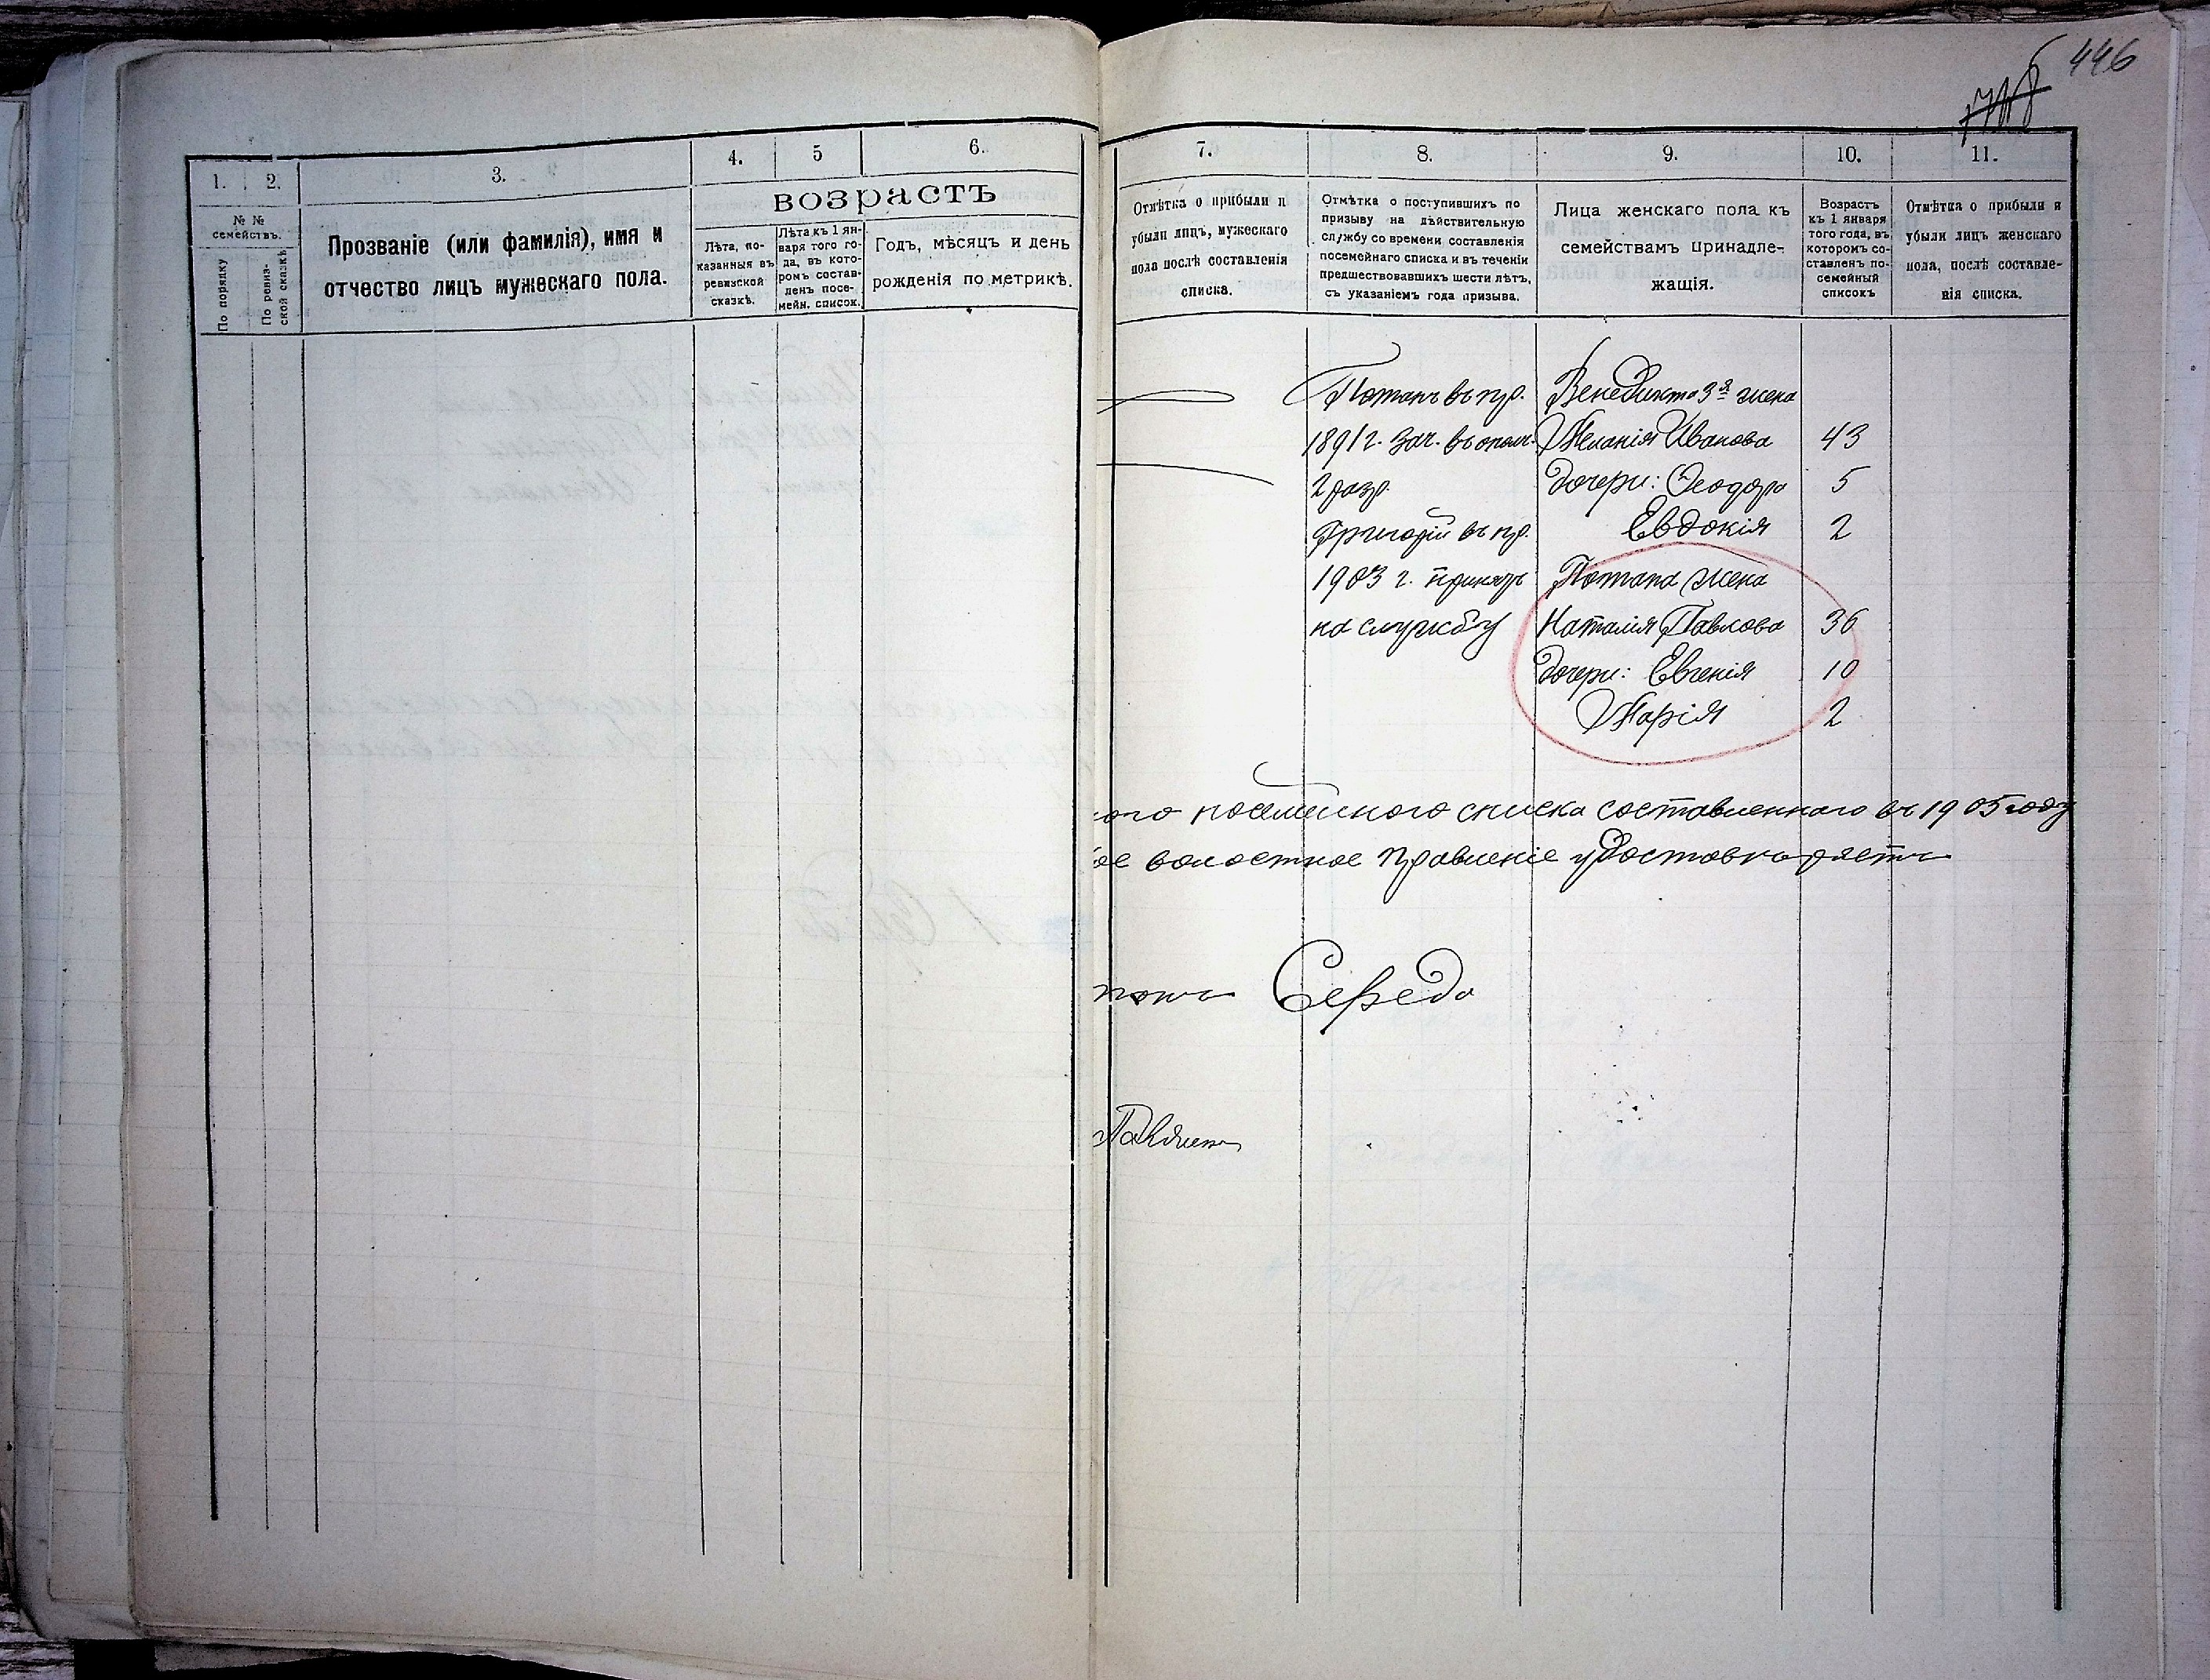 446
1.
2.
3.
4.
5
6.
возрастъ
№ №
семействъ.
По порядку
По ревиз-
ской сказкѣ
Прозваніе (или фамилія), имя и
отчество лицъ мужескаго пола.
Лѣта, по-
казанныя въ
ревизской
сказкѣ.
Лѣта къ 1 ян-
варя того го-
да, въ кото-
ромъ состав-
ленъ посе-
мейн. список.
Годъ, мѣсяцъ и день
рожденія по метрикѣ.
7.
8.
9.
10.
11.
Отмѣтка о прибыли и
убыли лицъ, мужескаго
пола послѣ составленія
списка.
Отмѣтка о поступившихъ по
призыву на дѣйствительную
службу со времени составленія
посемейнаго списка и въ теченіи
предшествовавшихъ шести лѣтъ,
съ указаніемъ года призыва.
Лица женскаго пола къ
семействамъ принадле-
жащія.
Возрастъ
къ 1 января
того года, въ
которомъ со-
ставленъ по-
семейный
списокъ
Отмѣтка о прибыли и
убыли лицъ женскаго
пола, послѣ составле-
нія списка.
Потапъ въ пр.
1891 г. зач. въ ополч.
2 разр.
Григорій въ пр.
1903 г. принятъ
на службу
Венедикта 3я жена
Меланія Иванова 43
дочери: Ѳеодора 5
Евдокія 2
Потапа жена
Наталія Павлова 36
дочери: Евгенія 10
Марія 2
ого посемейного списка составленнаго въ 1905 году
ое волостное правленіе удостовѣряетъ
Середа